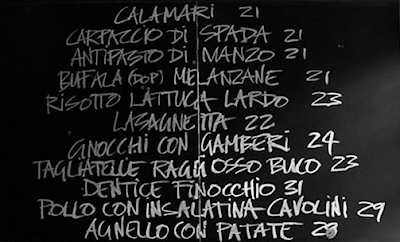 CALAMARI 21
CARPACCIO DI SPADA 21
ANTIPASTO DI MANZO 21
BUFALA (DOP) MELANZANE 21
RISOTTO LATTUGA LARDO 23
LASAGNETTA 22
GNOCCHI CON GAMBERI 24
TAGLIATELLE RAGÙ OSSO BUCO 23
DENTICE FINOCCHIO 31
POLLO CON INSALATINA CAVOLINI 29
AGNELLO CON PATATE 28